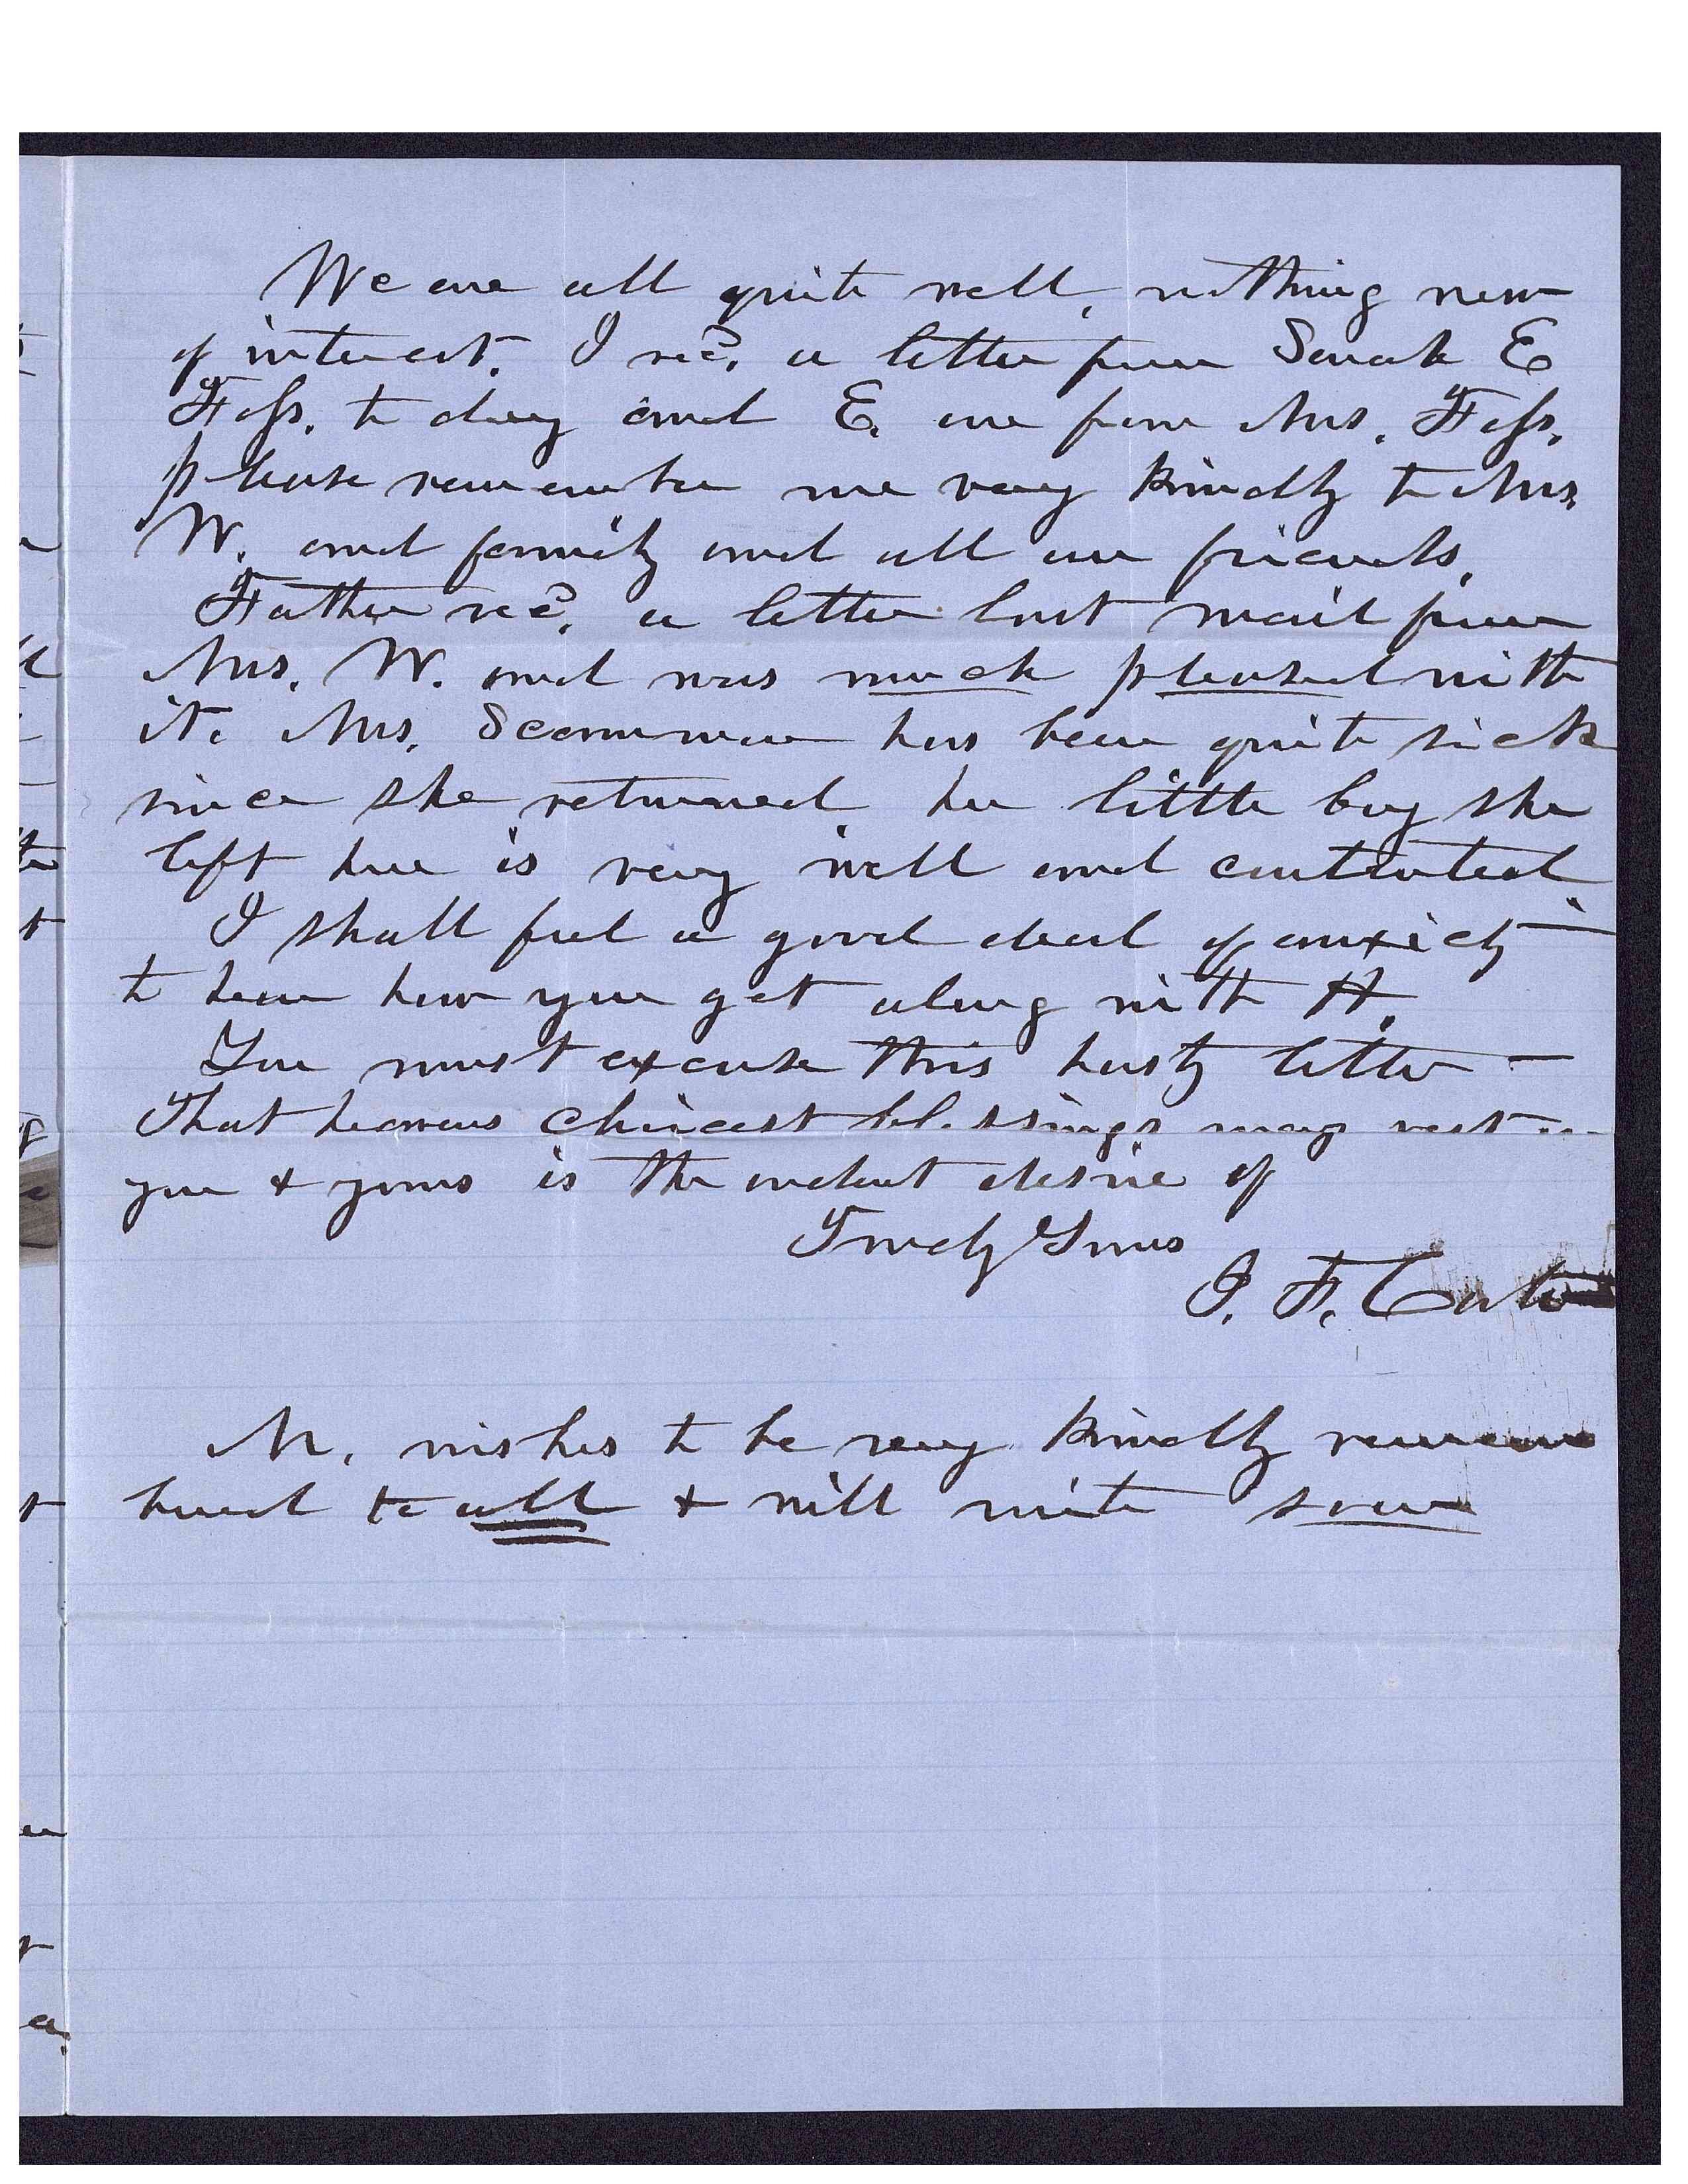 We are all quite well, nothing new
of interest. I recd. a letter from Sarah E
Foss. to day and E. one from Mrs. Foss.
please remember me very kindly to Mrs.
W. and family and all our friends.
Father recd. a letter last mail from
Mrs. W. and was much pleased with
it. Mrs. Scammon has been quite sick
since she returned, her little boy she
left here is very well and contented.
I shall feel a good deal of anxiety
to hear how you get along with H.
You must excuse this hasty letter —
That heavens choicest blessings may rest on
you & yours is the ardent desire of
Truly Yours
J. F. Carter
M. wishes to be very kindly remem
bered to all & will write soon